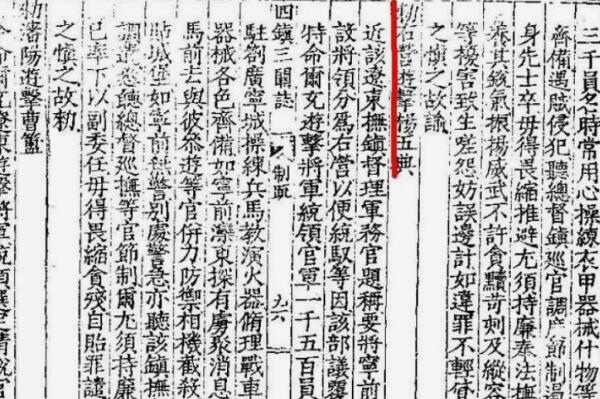 三千員名時常用心練衣甲器械什物等
齊備遇賊侵犯聽總督鎮巡官調度節制
身先士卒毋得畏縮推避尤須持廉奉法撫
養其銳氣振揚威武不許貪黷苛刻及縱容
等擾害致生嗟怨妨誤邊計如違罪不輕貸
之慎之故諭
勅右營遊擊楊五典
近該遼東撫鎮督理軍務官題稱要將寧前
設將領分爲右營以便統馭等因該部議覆
特命爾充遊擊將軍統領官軍一千五百員
四鎮三關誌 制疏 九六
駐劄廣寧城操練兵馬教演火器脩理戰車
器械各色齊備如寧前東探有虜聚消息
馬前去與彼叅遊等官併力防禦相機截殺
城堡如寧前警別處警急亦聽該鎮撫
調遣悉聽總督巡撫等官節制爾尤須持廉
己率下以副委任毋得畏縮貪殘自貽罪譴
之慎之故勅
勅瀋陽遊擊曹簠
今命爾充遼東遊擊將軍統領選定精銳官